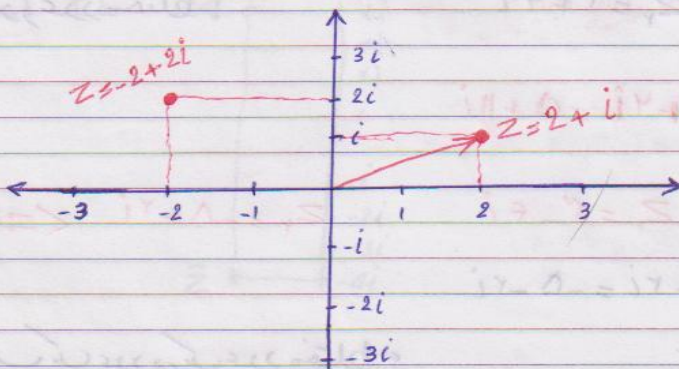 3i
z=-2+2i
2i
i
z=2+i
-3 -2 -1 1 2 3
-i
-2i
-3i